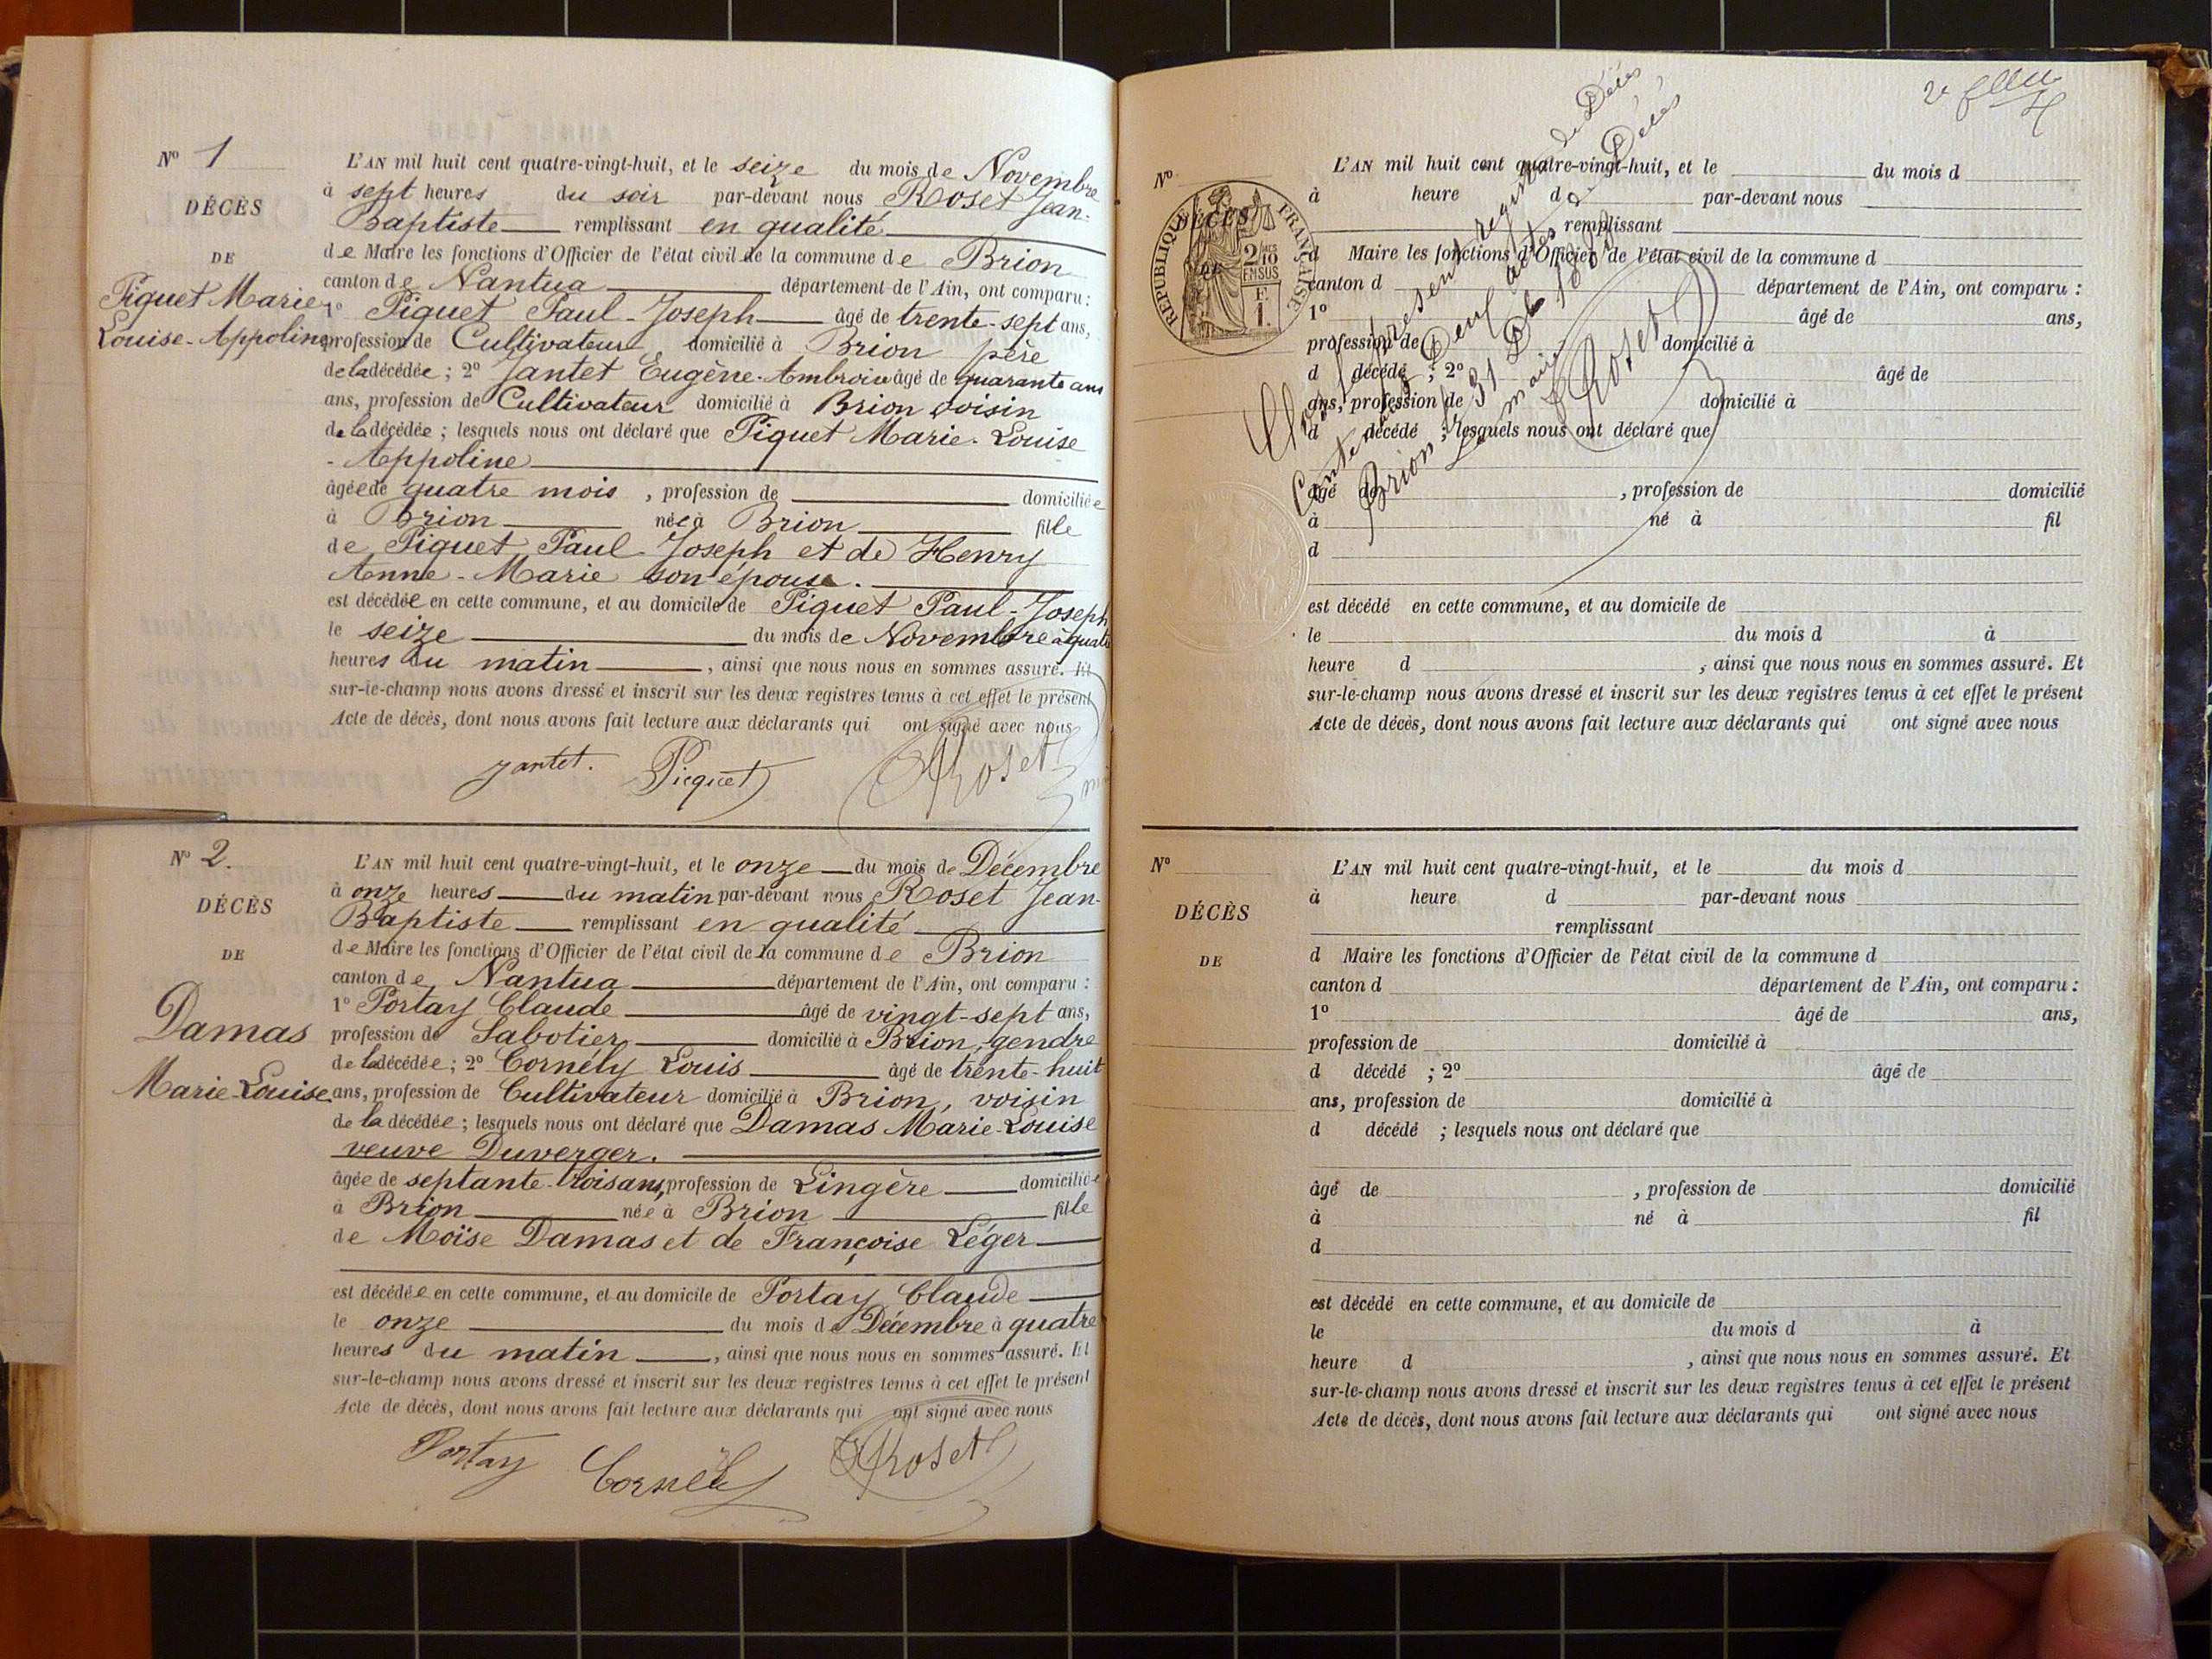 Nº 1
DÉCÈS
DE
Piquet Marie
Louise-Appoline
L'AN mil huit cent quatre-vingt-huit, et le seize du mois de Novembre
à sept heures du soir par-devant nous Roset Jean-
Baptiste remplissant en qualité
de Maire les fonctions d'Officier de l'état civil de la commune de Brion
canton de Nantua département de l'Ain, ont comparu :
1º Piquet Paul-Joseph âgé de trente-sept ans,
profession de Cultivateur domicilié à Brion père
de la décédée ; 2º Jantet Eugène-Ambroise âgé de quarante ans
ans, profession de Cultivateur domicilié à Brion voisin
de la décédée ; lesquels nous ont déclaré que Piquet Marie-Louise
-Appoline
âgée de quatre mois , profession de domiciliée
à Brion née à Brion fille
de Piquet Paul Joseph et de Henry
Anne-Marie son épouse.
est décédée en cette commune, et au domicile de Piquet Paul-Joseph
le seize du mois de Novembre à quatre
heures du matin , ainsi que nous nous en sommes assuré. Et
sur-le-champ nous avons dressé et inscrit sur les deux registres tenus à cet effet le présent
Acte de décès, dont nous avons fait lecture aux déclarants qui ont signé avec nous
Jantet. Picquet Roset
Nº 2.
DÉCÈS
DE
Damas
Marie-Louise
L'AN mil huit cent quatre-vingt-huit, et le onze du mois de Décembre
à onze heures du matin par-devant nous Roset Jean-
Baptiste remplissant en qualité
de Maire les fonctions d'Officier de l'état civil de la commune de Brion
canton de Nantua département de l'Ain, ont comparu :
1º Portay Claude âgé de vingt-sept ans,
profession de Sabotier domicilié à Brion, gendre
de la décédée ; 2º Cornély Louis âgé de trente-huit
ans, profession de Cultivateur domicilié à Brion, voisin
de la décédée ; lesquels nous ont déclaré que Damas Marie-Louise
veuve Duverger.
âgée de septante-trois ans, profession de Lingère domiciliée
à Brion née à Brion fille
de Moïse Damas et de Françoise Léger
est décédée en cette commune, et au domicile de Portay Claude
le onze du mois de Décembre à quatre
heures du matin , ainsi que nous nous en sommes assuré. Et
sur-le-champ nous avons dressé et inscrit sur les deux registres tenus à cet effet le présent
Acte de décès, dont nous avons fait lecture aux déclarants qui ont signé avec nous
Portay Cornély Roset
2e
Nº
DÉCÈS
DE
RÉPUBLIQUE FRANÇAISE
2/10
EN SUS
F.
1.
L'AN mil huit cent quatre-vingt-huit, et le du mois d
à heure d par-devant nous
remplissant
d Maire les fonctions d'Officier de l'état civil de la commune d
canton d département de l'Ain, ont comparu :
1º âgé de ans,
profession de domicilié à
d décédé ; 2º âgé de
ans, profession de domicilié à
d décédé ; lesquels nous ont déclaré que
âgé de , profession de domicilié
à né à fil
d
est décédé en cette commune, et au domicile de
le du mois d à
heure d , ainsi que nous nous en sommes assuré. Et
sur-le-champ nous avons dressé et inscrit sur les deux registres tenus à cet effet le présent
Acte de décès, dont nous avons fait lecture aux déclarants qui ont signé avec nous
présent registre de Décès
Deux actes de Décès
Brion 31
Roset
Nº
DÉCÈS
DE
L'AN mil huit cent quatre-vingt-huit, et le du mois d
à heure d par-devant nous
remplissant
d Maire les fonctions d'Officier de l'état civil de la commune d
canton d département de l'Ain, ont comparu :
1º âgé de ans,
profession de domicilié à
d décédé ; 2º âgé de
ans, profession de domicilié à
d décédé ; lesquels nous ont déclaré que
âgé de , profession de domicilié
à né à fil
d
est décédé en cette commune, et au domicile de
le du mois d à
heure d , ainsi que nous nous en sommes assuré. Et
sur-le-champ nous avons dressé et inscrit sur les deux registres tenus à cet effet le présent
Acte de décès, dont nous avons fait lecture aux déclarants qui ont signé avec nous